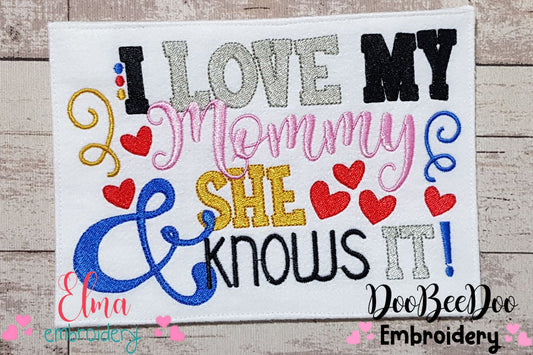 I LOVE MY
Mommy
& SHE
KNOWS IT!
Elma
embroidery
DooBeeDoo
Embroidery